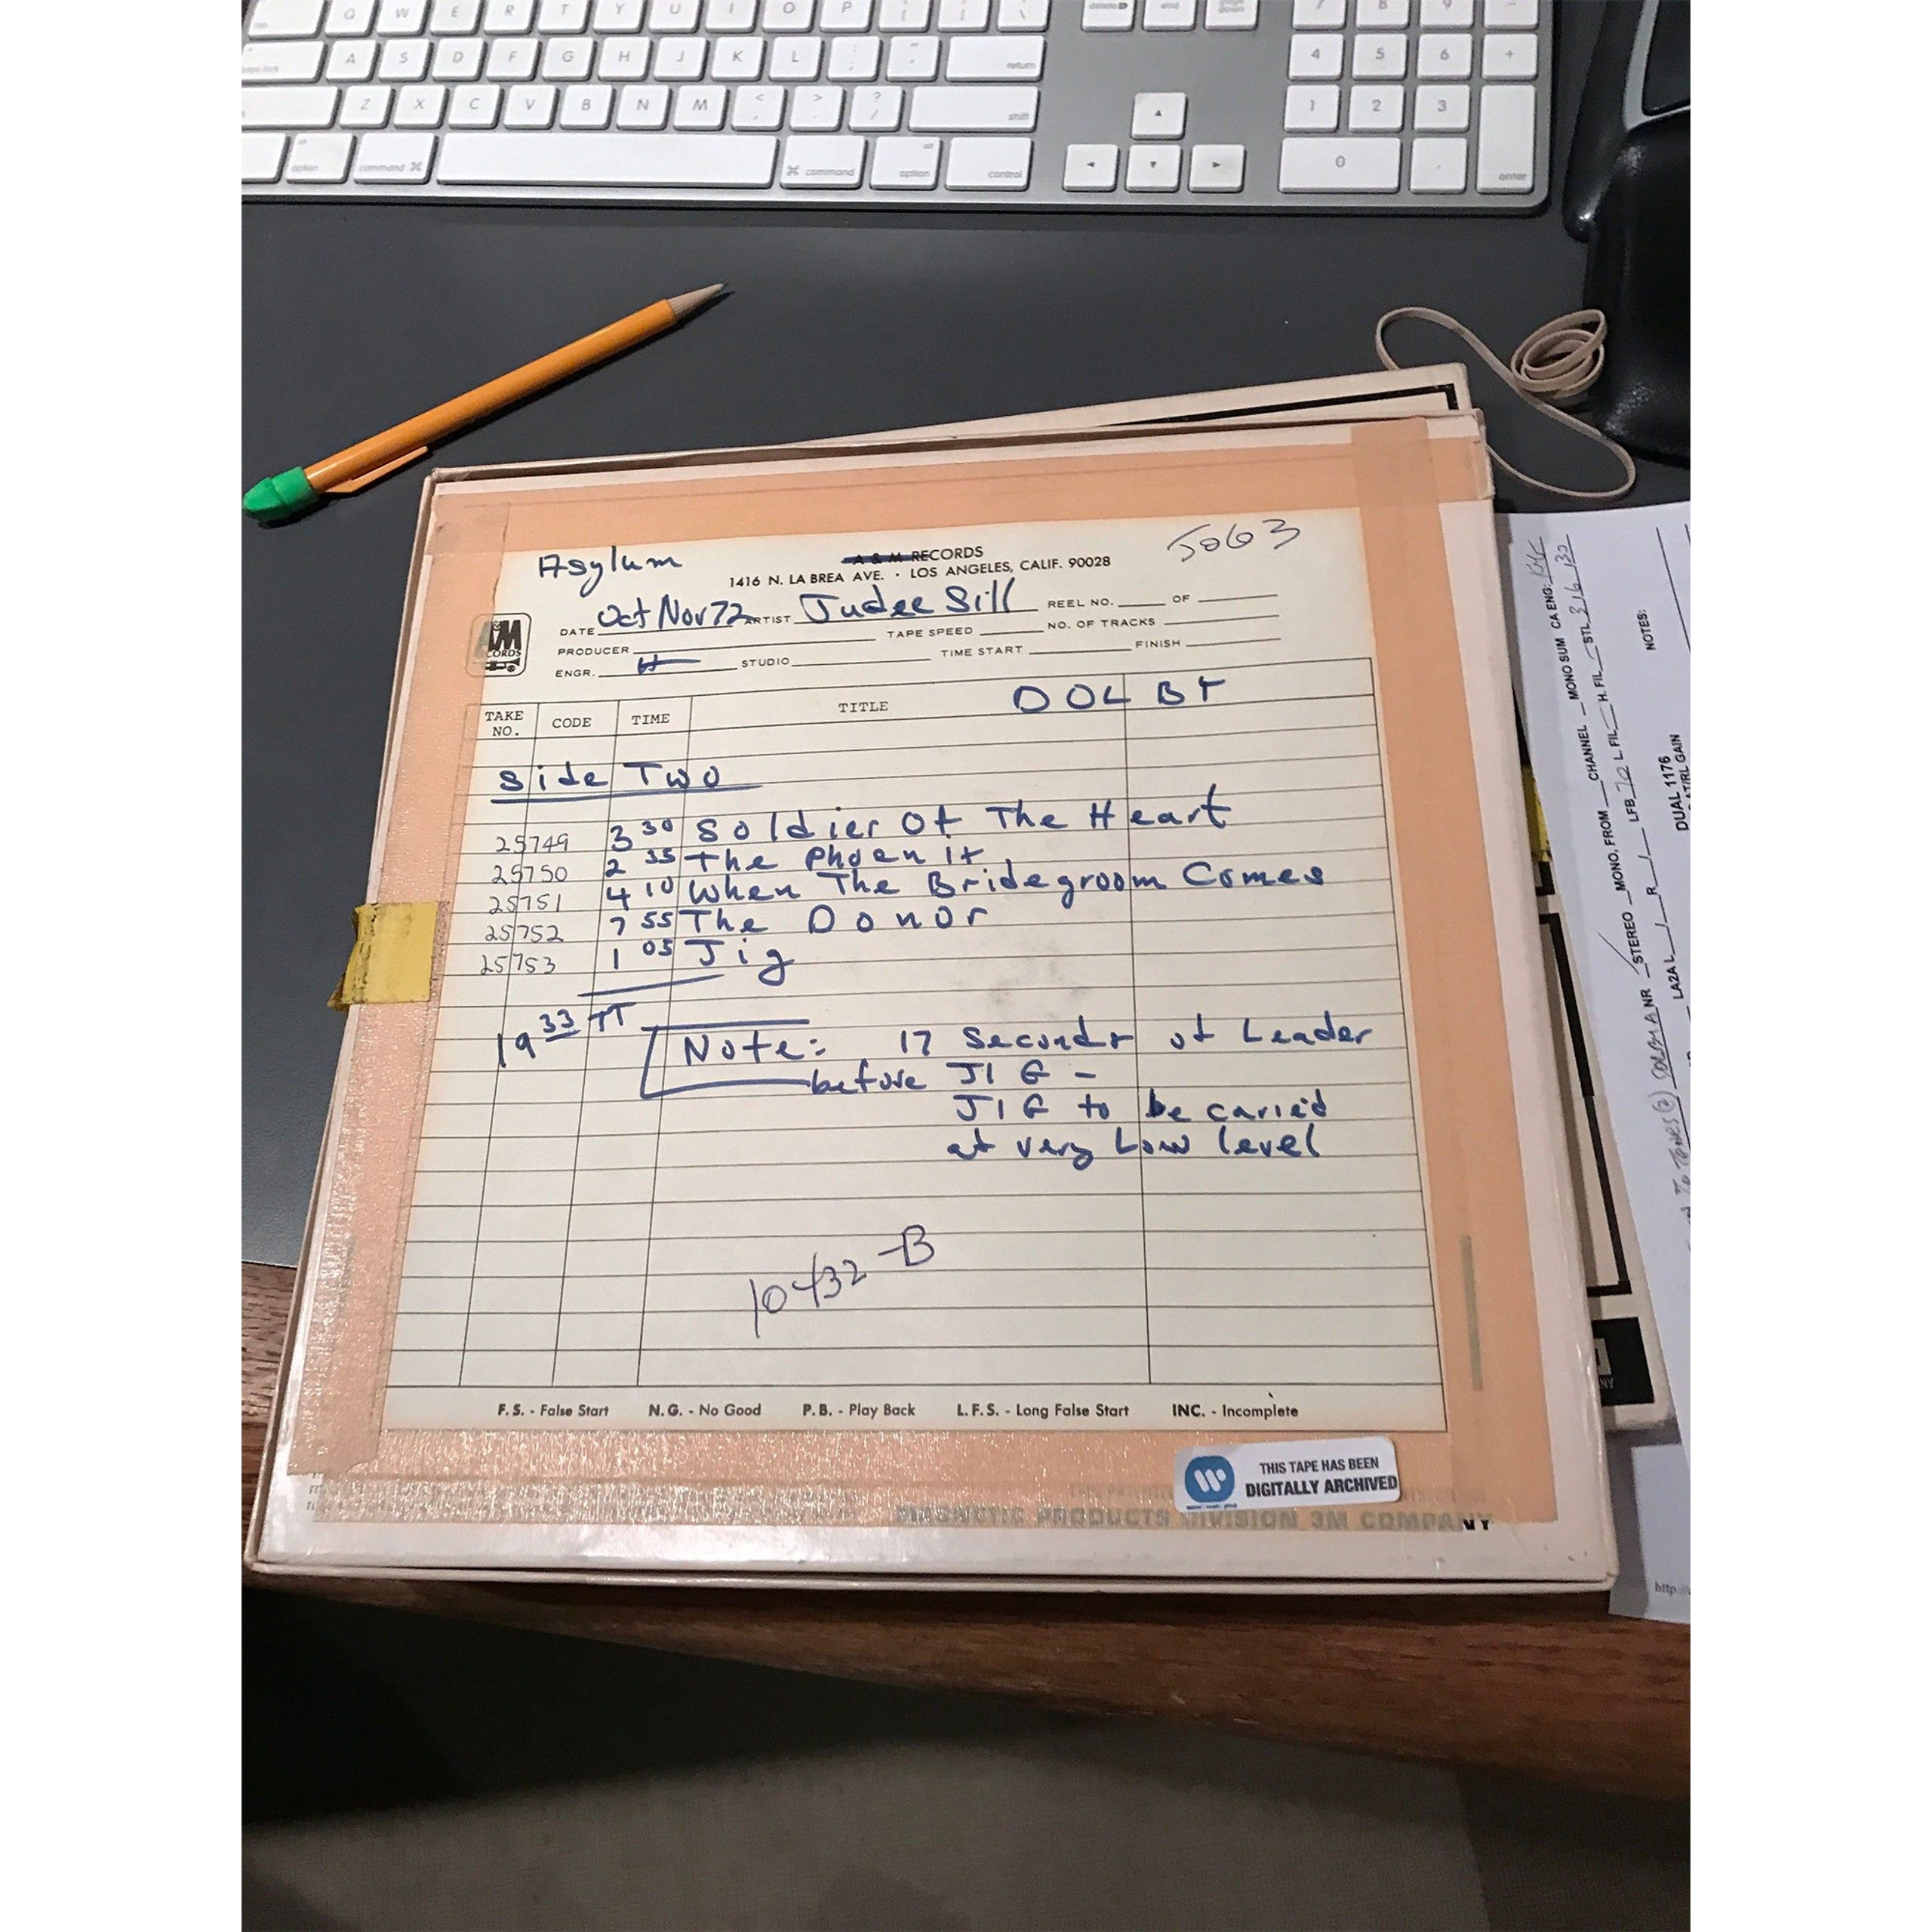 Q W E R T Y U I O P
A S D F G H J K L return
Z X C V B N M shift
option command ⌘ ⌘ command option control
delete end
4 5 6 +
1 2 3
0 . enter
Asylum A & M RECORDS 5063
1416 N. LA BREA AVE. · LOS ANGELES, CALIF. 90028
DATE Oct Nov 72 ARTIST Judee Sill REEL NO. OF
PRODUCER TAPE SPEED NO. OF TRACKS
ENGR. STUDIO TIME START FINISH
DOLBY
TAKE NO. CODE TIME TITLE
Side Two
25749 3 30 Soldier Of The Heart
25750 2 35 The Phoenix
25751 4 10 When The Bridegroom Comes
25752 7 55 The Donor
25753 1 05 Jig
19 33 TT
Note: 17 Seconds of Leader
before JIG -
JIG to be carried
at very Low level
10432-B
F.S. - False Start N.G. - No Good P.B. - Play Back L.F.S. - Long False Start INC. - Incomplete
THIS TAPE HAS BEEN
DIGITALLY ARCHIVED
MAGNETIC PRODUCTS DIVISION 3M COMPANY
CA ENG:
STEREO MONO, FROM CHANNEL MONO SUM
LFB L. FIL H. FIL STL
LA2A L R
NOTES:
DUAL 1176
http